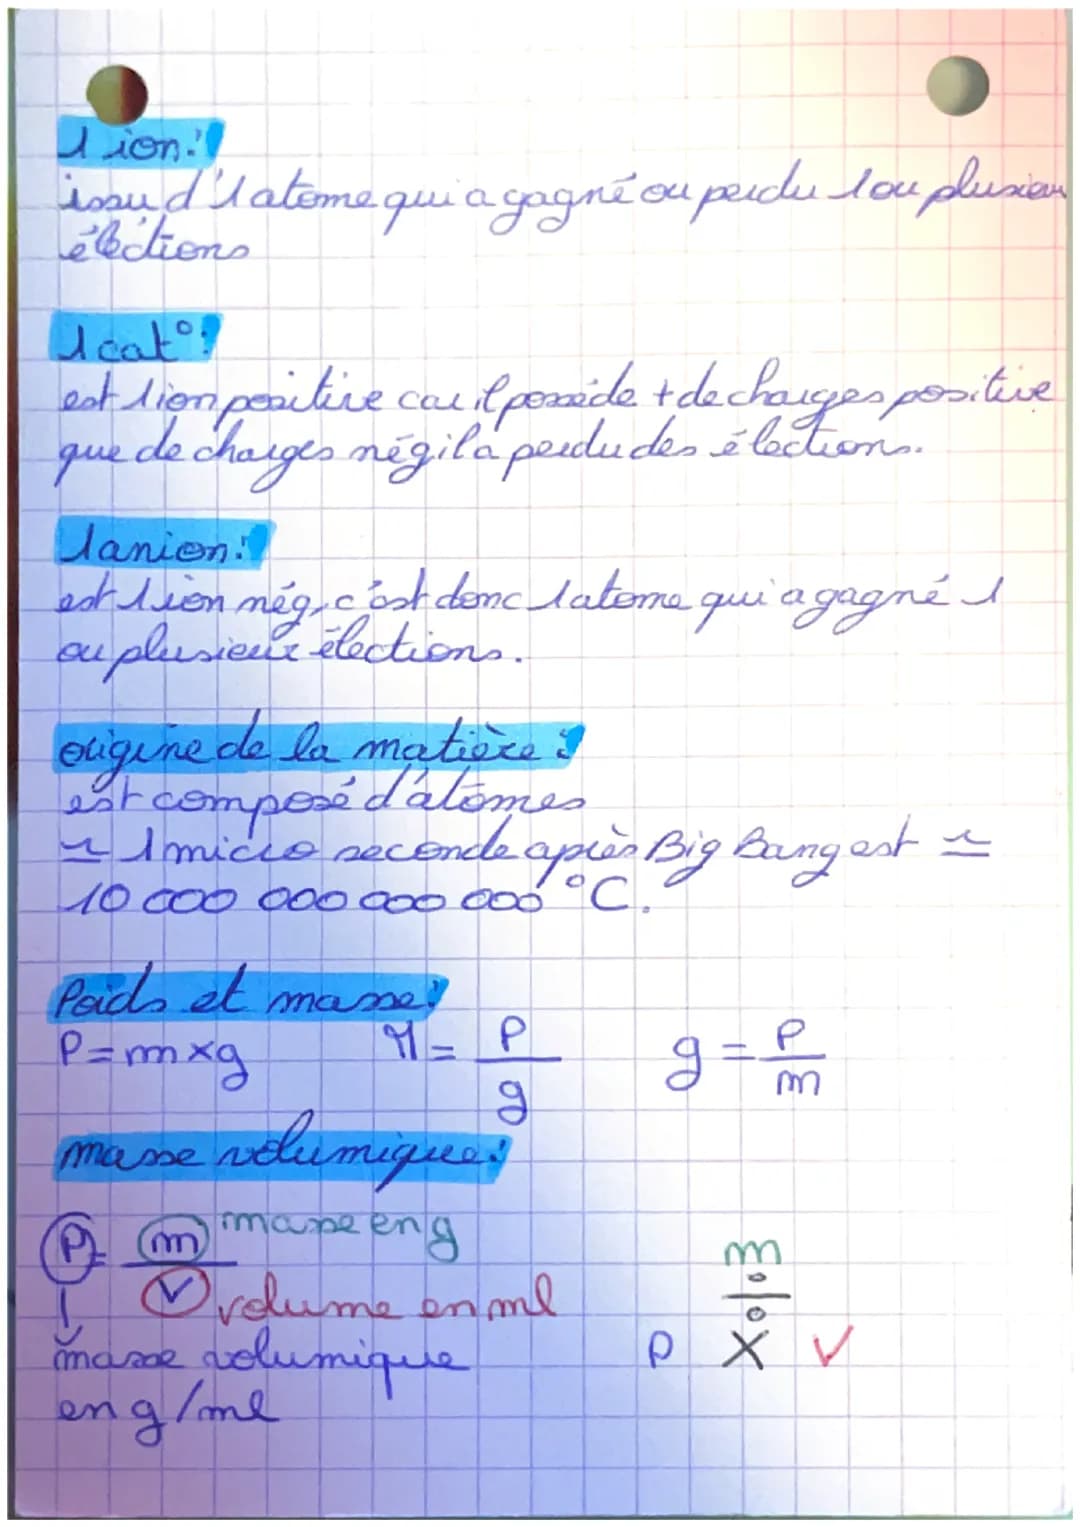 1 ion:
issu d'1 atome qui a gagné ou perdu 1 ou plusieurs
élections
1 cat°:
est 1 ion positive car il possède + de charges positive
que de charges nég il a perdu des élections.
1 anion:
est 1 ion nég, c'est donc 1 atome qui a gagné 1
ou plusieux élections.
origine de la matière:
est composé d'atomes
≃ 1 micro seconde après Big Bang est ≃
10 000 000 000 000 °C.
Poids et masse:
P = m × g M = P/g g = P/m
masse volumique:
P = m masse en g
V volume en ml
↓
masse volumique
en g/ml
m
÷
P × V